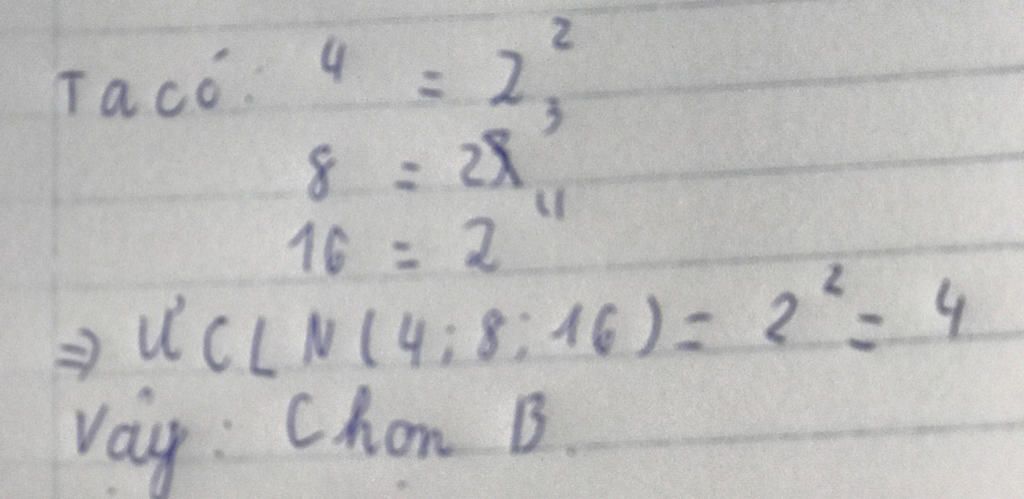 Ta có: 4 = 2²
8 = 2³
16 = 2⁴
⇒ ƯCLN(4; 8; 16) = 2² = 4
Vậy: Chọn B.